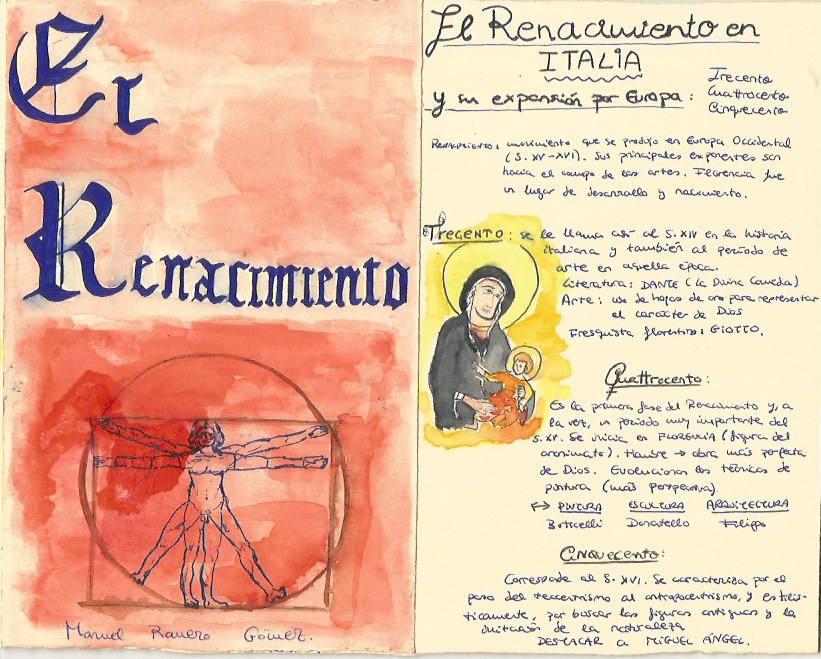 El
Renacimiento
Manuel Ranero Gómez.
El Renacimiento en
ITALIA
y su expansión por Europa:
Trecento
Cuattrocento
Cinquecento
RENACIMIENTO: movimiento que se produjo en Europa Occidental
(S. XV-XVI). Sus principales exponentes son
hacia el campo de las artes. Florencia fue
un lugar de desarrollo y nacimiento.
TRECENTO: se le llama así al S. XIV en la historia
italiana y también al período de
arte en aquella época.
Literatura: DANTE (La Divina Comedia)
Arte: uso de hojas de oro para representar
el carácter de Dios
Fresquista florentino: GIOTTO.
Quattrocento:
Es la primera fase del Renacimiento y, a
la vez, un período muy importante del
S. XV. Se inicia en FLORENCIA (figura del
anonimato). Hombre → obra más perfecta
de Dios. Evolucionan las técnicas de
pintura (más perspectiva)
↦ PINTURA ESCULTURA ARQUITECTURA
Botticelli Donatello Filippo
CINQUECENTO:
Corresponde al S. XVI. Se caracteriza por el
paso del teocentrismo al antropocentrismo, y estilís-
ticamente, por buscar las figuras antiguas y la
imitación de la naturaleza
DESTACAR a MIGUEL ÁNGEL.